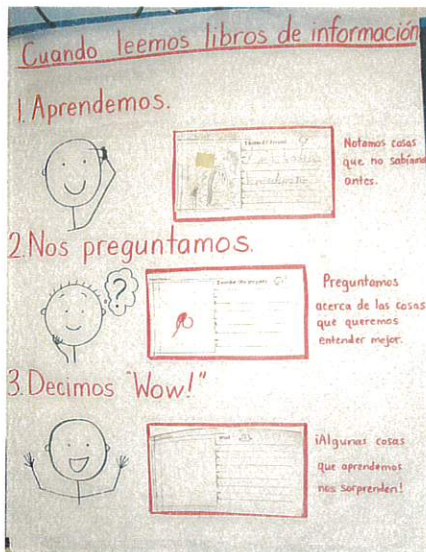 Cuando leemos libros de información
1. Aprendemos.
Notamos cosas
que no sabíamos
antes.
2. Nos preguntamos.
?
Preguntamos
acerca de las cosas
que queremos
entender mejor.
3. Decimos "Wow!"
¡Algunas cosas
que aprendemos
nos sorprenden!